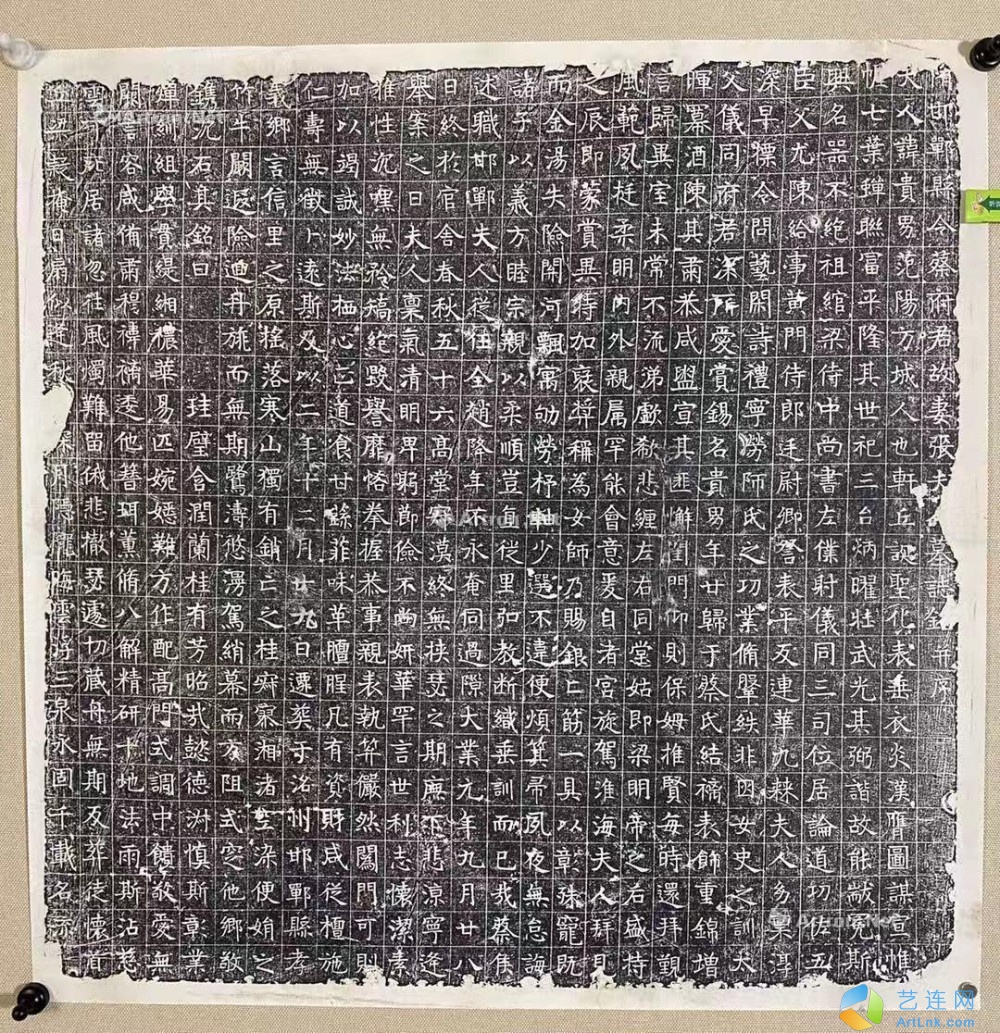 隋邯鄲縣令蔡府君故妻張夫人墓誌銘并序
夫人諱貴男范陽方城人也軒丘誕聖化表垂衣炎漢膺圖謀宣惟
幄七葉蟬聯富平隆其世祀三台炳曜壯武光其弼諧故能黻冕斯
興名器不絕祖綰梁侍中尚書左僕射儀同三司位居論道功佐五
臣父尤陳給事黃門侍郎廷尉卿譽表平反連華九棘夫人夙稟淳
深早摽令問藝閑詩禮寧勞師氏之功業脩鞶絲非因女史之訓大
父儀同府君深所愛賞錫名貴男年廿歸于蔡氏結褵表飾重錦增
暉羃酒陳其肅恭咸盥宣其匪懈閨門仰則保姆推賢每時還拜覲
言歸異室未常不流涕歔欷悲纏左右同堂姑即梁明帝之后盛持
風範夙挺柔明內外親属罕能會意爰自者宮旋駕淮海夫人拜見
之辰即蒙賞異特加襃奬稱為女師乃賜銀匕筯一具以彰殊寵既
而金湯失險關河飄寓劬勞杼軸少選不違便煩箕帚夙夜無怠誨
諸子以義方睦宗親以柔順豈直徙里弘教断織垂訓而已哉蔡侯
述職邯鄲夫人從任全趙降年不永奄同過隙大業元年九月廿八
日終於官舍春秋五十六高堂寂漠終無挾瑟之期廡下悲涼寧逢
舉案之日夫人稟氣清明卑躬節儉不尚妍華罕言世利志懷潔素
雅性沉嘿無矜稿絁毀譽靡恡拳握恭事親表執筭儼然闔門可則
加以竭誠妙法栖心三道食甘蔬菲味革膻腥凡有資財咸從檀施
仁壽無徵卜遠斯及以二年十二月廿九日遷葬于洛州邯鄲縣孝
義鄉言信里之原搖落寒山獨有銷亡之桂冢湘渚空染便娟之
竹牛闕遐險迴丹旐而無期鷺濤悠湧駕綃幕而方阻式窆他鄉敬
鐫沉石其銘曰 珪璧含潤蘭桂有芳昭哉懿德淑慎斯彰業
殫紃組學貫緹緗禯華易匹婉嫕難方作配高門式調中饋敬愛無
闕言容咸侑肅穆委他簪珥薰脩八解精研十地法雨斯沾慈
雲可比居諸忽往風燭難留俄悲撤瑟遽切藏舟無期反葬徒懷首
丘長日扃秋隴晦雲浮三泉永固千載名流
艺连网
ArtLnk.com